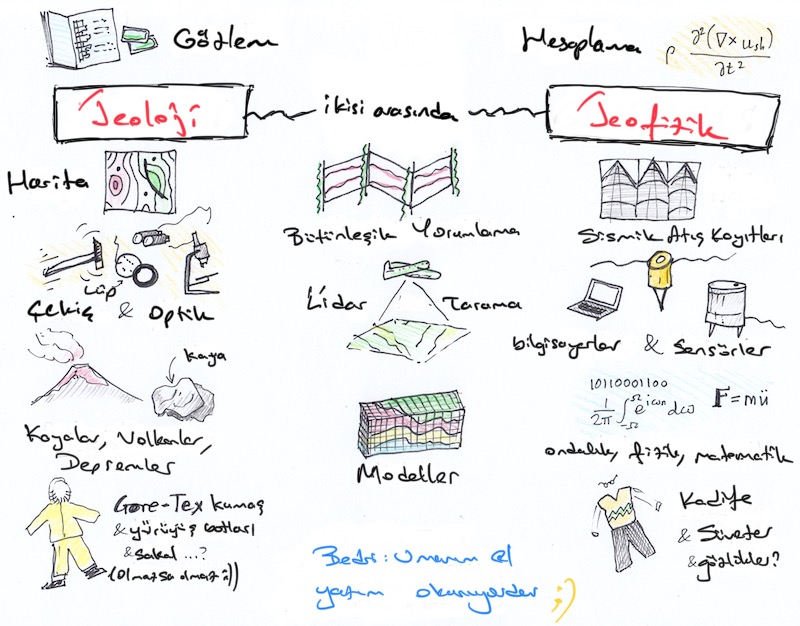 Gözlem
Hesaplama
ρ ∂²(∇×u_sh) / ∂t²
Jeoloji
ikisi arasında
Jeofizik
Harita
Bütünleşik Yorumlama
Sismik Atış Kayıtları
Lüp
Çekiç & Optik
Lidar Tarama
Bilgisayarlar & Sensörler
Kaya
Kayalar, Volkanlar,
Depremler
Modeller
10110001100
1/2π ∫ e^iωn dω
F = mü
ondalık, fizik, matematik
Gore-Tex kumaş
& yürüyüş botları
& sakal ...?
(Olmazsa olmaz :))
Kadife
& Süveter
& gözlükler?
Bedri: Umarım el
yazım okunuyordur ;)